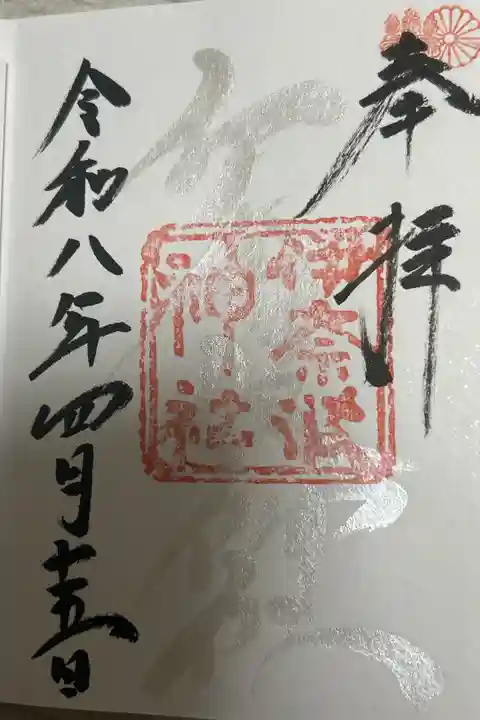 奉拝
伊奈波
神社
令和八年四月十五日